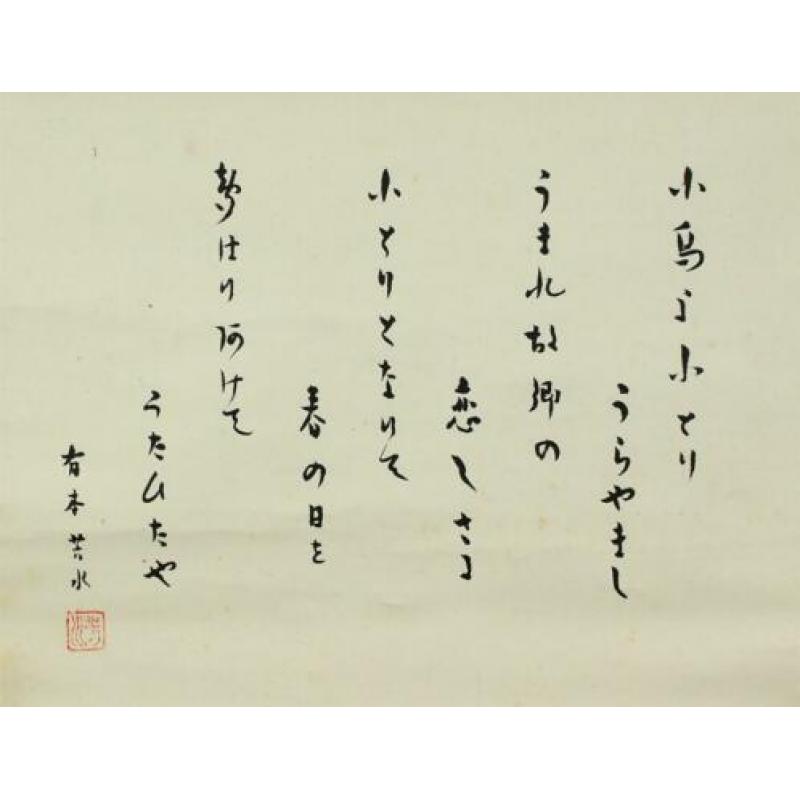 小鳥よ小とり
うらやまし
うまれ故郷の
恋しさよ
小とりとなりて
春の日を
聲はり阿けて
うたひたや
有本芳水